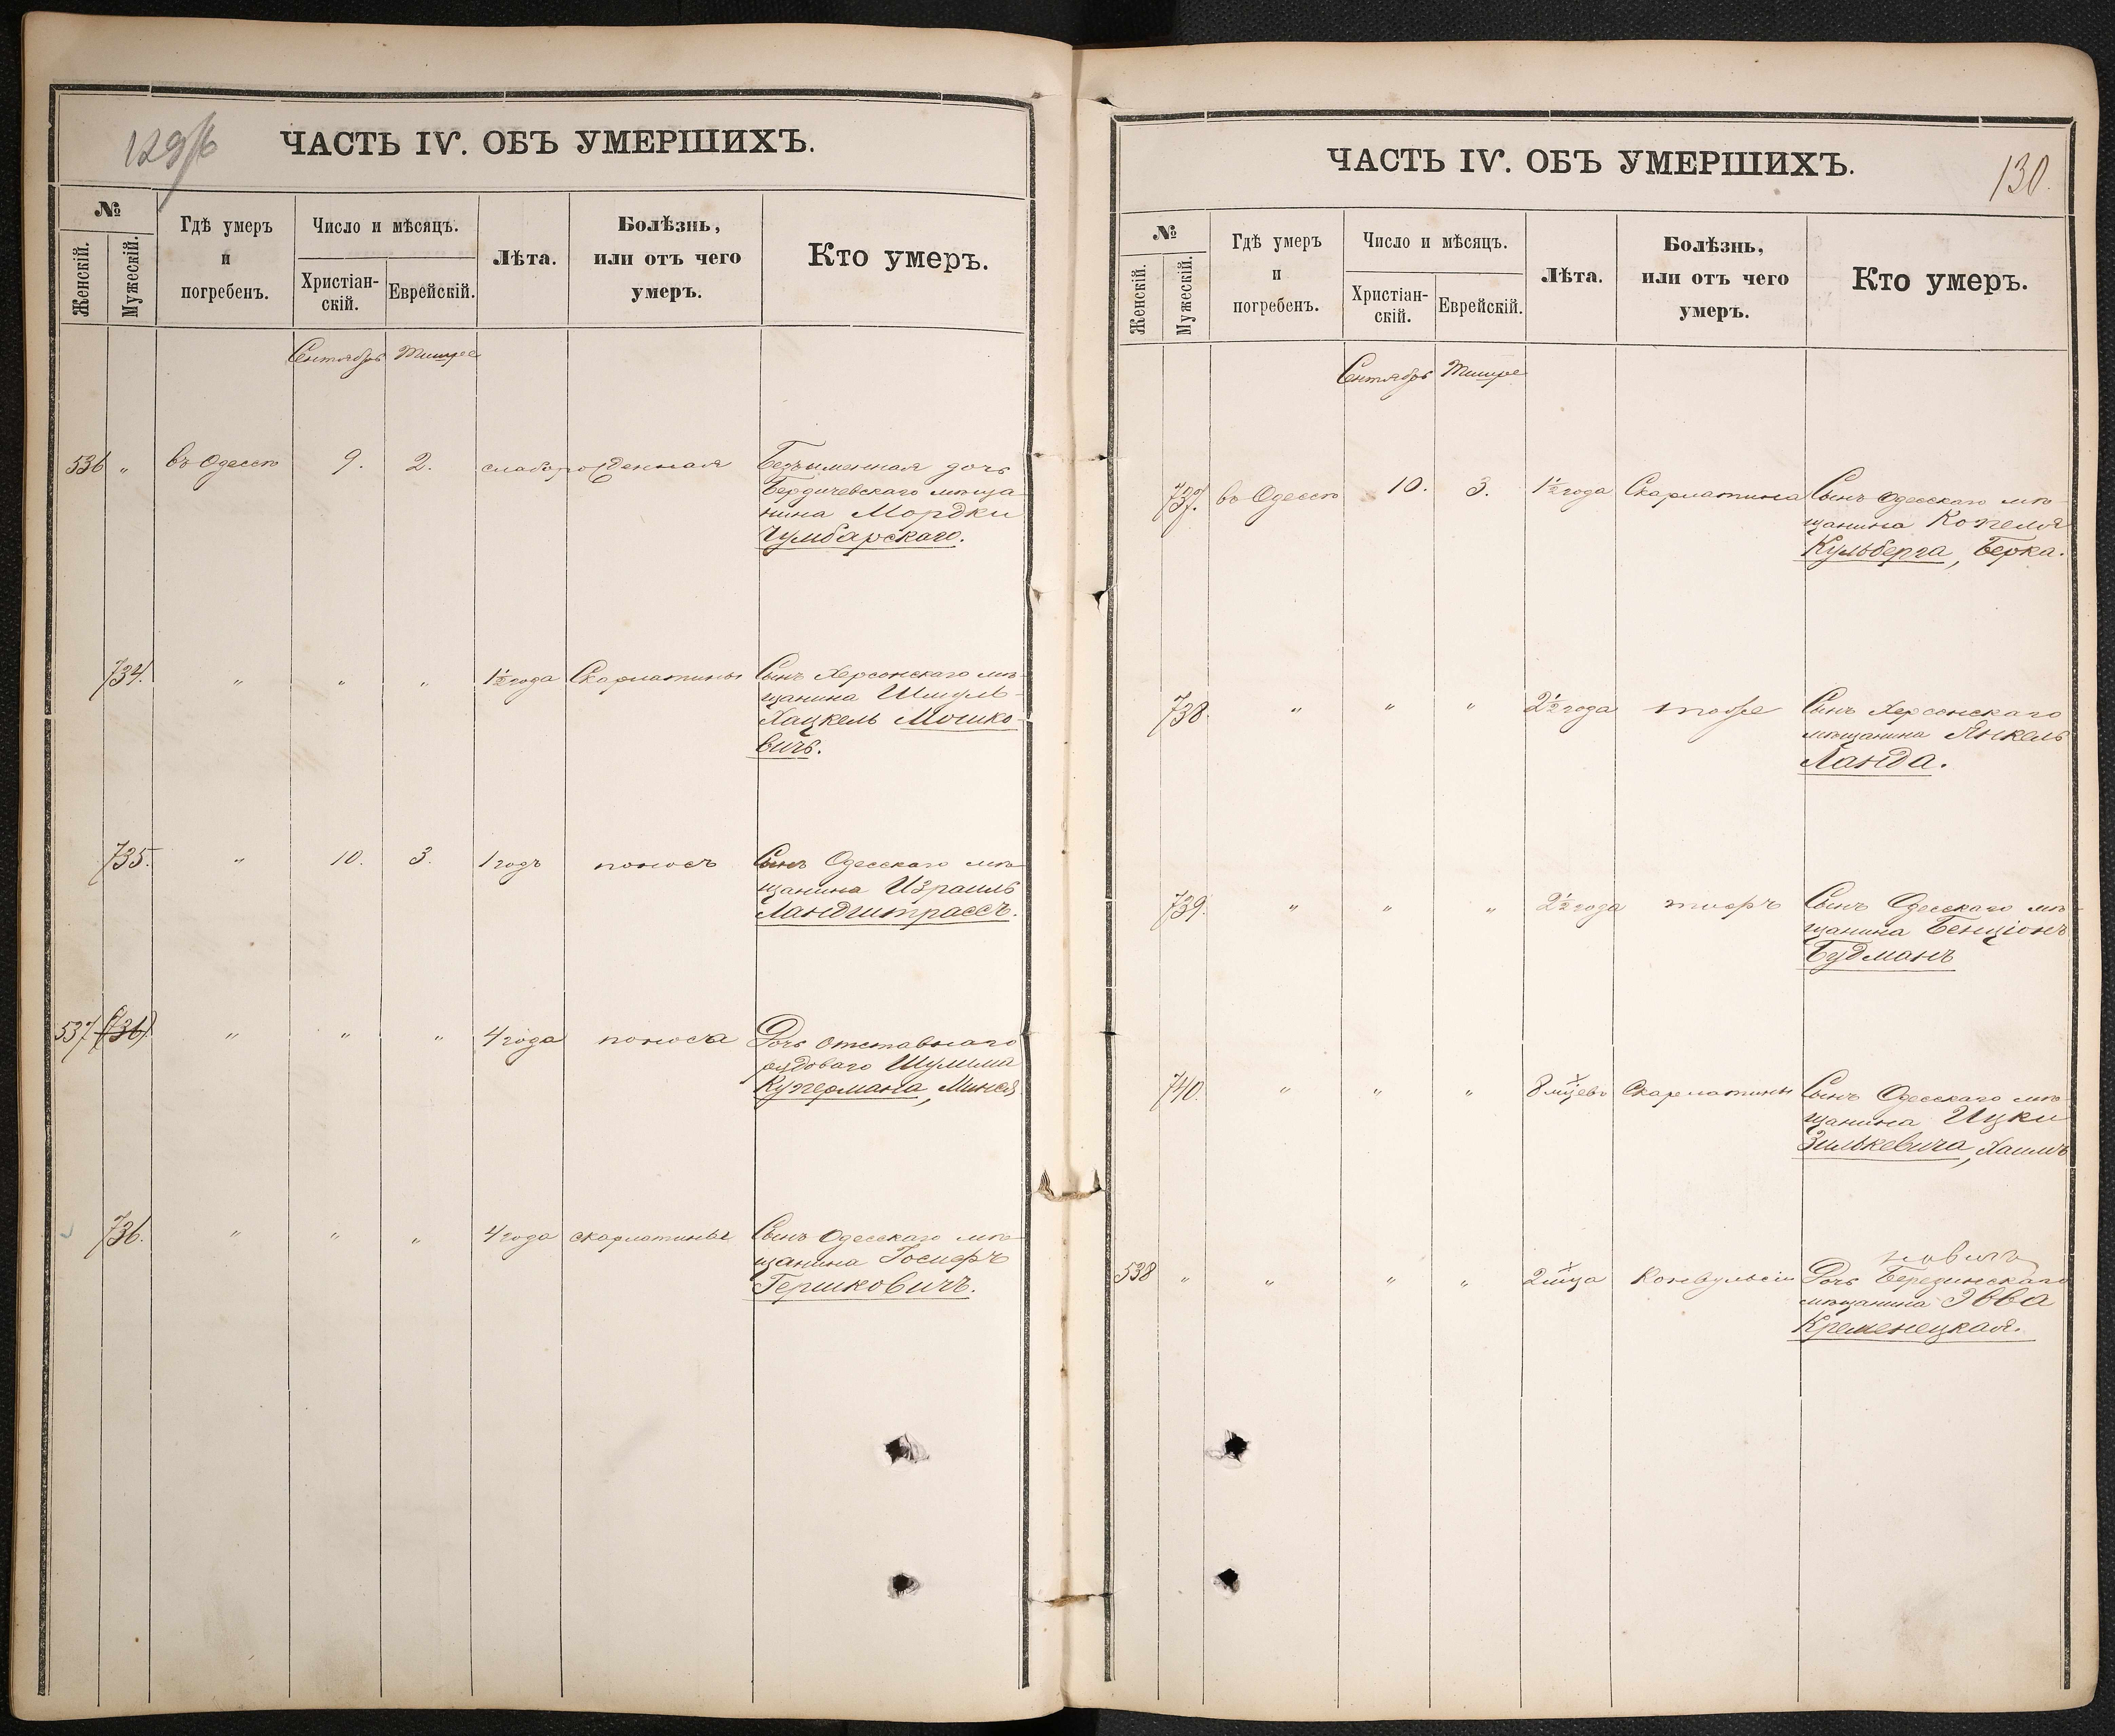 129/б
ЧАСТЬ IV. ОБЪ УМЕРШИХЪ.
№
Женскій.
Мужескій.
Гдѣ умеръ
и
погребенъ.
Число и мѣсяцъ.
Христіан-
скій.
Еврейскій.
Лѣта.
Болѣзнь,
или отъ чего
умеръ.
Кто умеръ.
Сентябрь Тишре
536 " въ Одессѣ 9. 2. слаборожденная Безъименная дочь
Бердичевскаго мѣща
нина Мордки
Чумбарскаго.
734. " " " 1½ года Скарлатины Сынъ Херсонскаго мѣ-
щанина Шмуль-
Хацкель Мошко-
вичъ.
735. " 10. 3. 1 годъ поносъ Сынъ Одесскаго мѣ-
щанина Израиль
Ландштрассъ.
537 (736) " " " 4 года поноса Дочь отставнаго
рядоваго Шулима
Купермана, Минся
736. " " " 4 года скарлатины Сынъ Одесскаго мѣ-
щанина Іосифъ
Гершковичъ.
ЧАСТЬ IV. ОБЪ УМЕРШИХЪ.
130.
№
Женскій.
Мужескій.
Гдѣ умеръ
и
погребенъ.
Число и мѣсяцъ.
Христіан-
скій.
Еврейскій.
Лѣта.
Болѣзнь,
или отъ чего
умеръ.
Кто умеръ.
Сентябрь Тишре
737. въ Одессѣ 10. 3. 1½ года Скарлатина Сынъ Одесскаго мѣ-
щанина Копеля
Кульберга, Берка.
738. " " " 2½ года тоже Сынъ Херсонскаго
мѣщанина Янкель
Ланда.
739. " " " 2½ года тифъ Сынъ Одесскаго мѣ-
щанина Бенціонъ
Будманъ
740. " " " 8 мцевъ Скарлатины Сынъ Одесскаго мѣ-
щанина Ицки
Зилькевича, Хаимъ
538 " " " " 2 мца Конвульсіи Дочь Березинскаго
мѣщанина Эвва
Кременецкая.